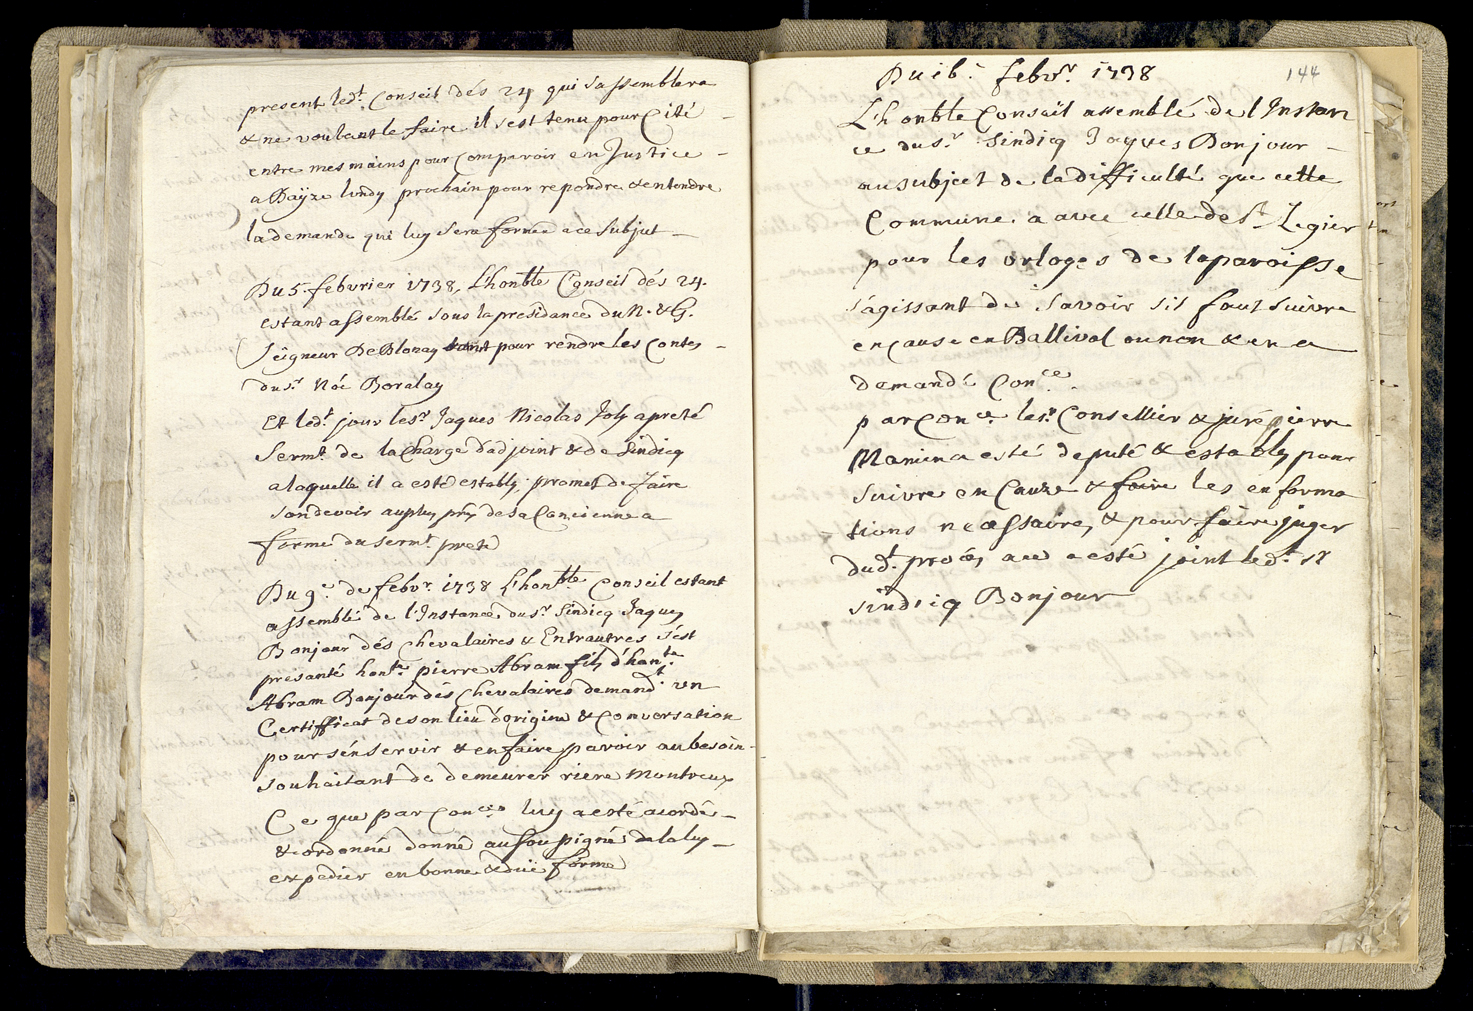 present led.t Conseil dés 24 qui sassemblera
& ne voulant le faire il s'est tenu pour Cité
entre mes mains pour Comparoir en Justice
a Bayze lundy prochain pour repondre & entendre
la demande qui luy sera formée a ce Subjut
Du 5. febvrier 1738, L'honble Conseil dés 24.
estant assemblé sous la presidance du N. & G.
Seigneur De Blonay pour rendre les Contes
du sr Noé Boralay
Et led.t jour le sr Jaques Nicolas Joly a preté
Sermt. de la Charge d'adjoint & de Sindicq
a laquelle il a esté estably, promet de faire
son devoir au plus prés de sa Concienne a
forme du Sermt. preté
Du 9e. de febvr. 1738 L'honble Conseil estant
assemblé de l'Instance du sr Sindicq Jaques
Bonjour dés Chevalaires & Entrautres s'est
presanté honte. pierre Abram fils d'honte.
Abram Bonjour dés Chevalaires demandt. un
Certifficat de son lieu d'origine & Conversation
pour s'én servir & en faire parroir au besoin
souhaitant de demeurer riere Montreux
Ce que par Conce luy a esté acordé
& ordonné donné au souspigné de la luy
expedier en bonne & düe forme
144
Du 16. febvr. 1738
L'honble Conseil assemblé de l'Instan
ce du sr. Sindicq Jayves Bonjour
au subject de la difficulté que cette
Commune a avec celle de St. Legier
pour les orloges de la paroisse
s'agissant de savoir s'il faut suivre
en Cause en Ballival ou non & en a
demandé Conce.
par Conce. le sr. Consellier & juré pierre
Mamin a esté deputé & estably pour
suivre en Cauze & faire les enforma
tions necessaires, & pour faire juger
dud.t procés, a esté joint led.t sr
sindicq Bonjour